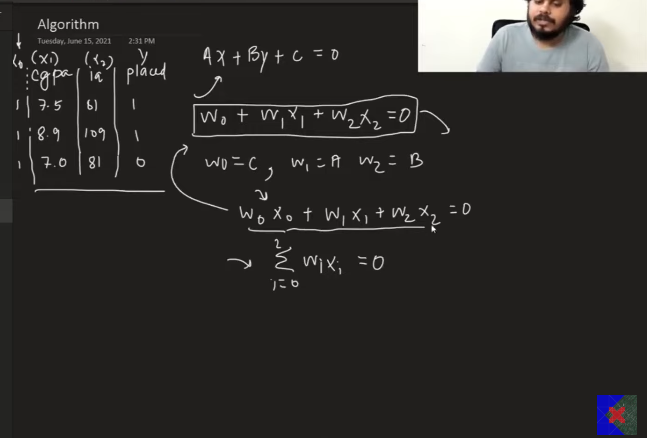 Algorithm
Tuesday, June 15, 2021 2:31 PM
x0 (x1) (x2) y
cgpa iq placed
1 7.5 61 1
1 8.9 109 1
1 7.0 81 0
Ax + By + C = 0
W0 + W1X1 + W2X2 = 0
w0 = C, w1 = A w2 = B
W0X0 + W1X1 + W2X2 = 0
2
Σ WiXi = 0
i=0